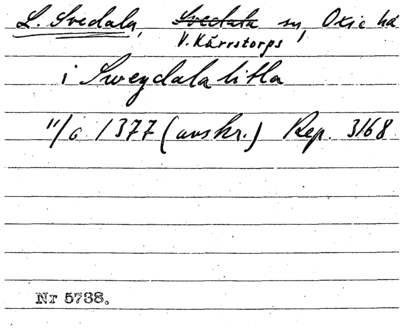 L. Svedala, Svedala sn, Oxie hd
V. Kärrstorps
i Sweydala litla
11/6 1377 (avskr.) Rep. 3168
Nr 5738.